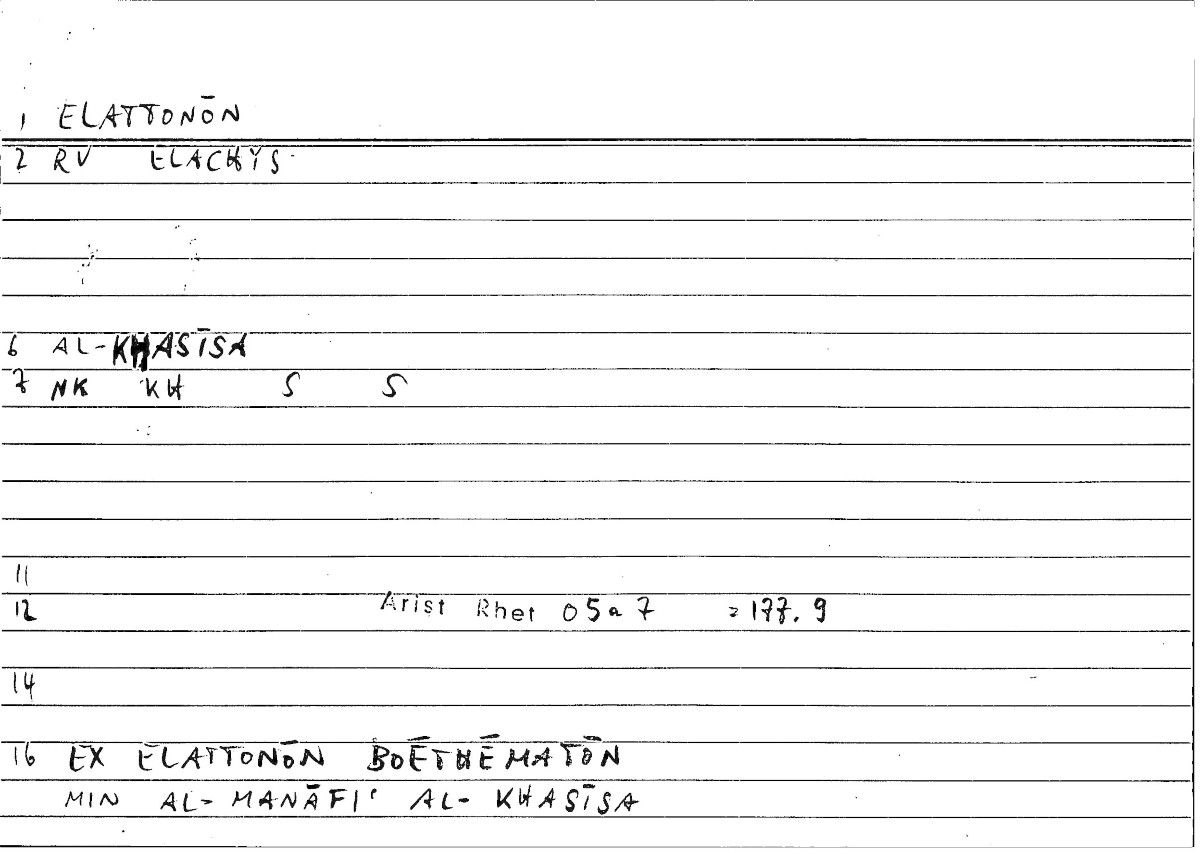 1 ELATTONŌN
2 RV ELACHỸS
6 AL-KHASĪSA
7 NK KH S S
11
12 Arist Rhet 05a7 =177.9
14
16 EX ELATTONŌN BOĒTHĒMATŌN
MIN AL-MANĀFIʿ AL-KHASĪSA